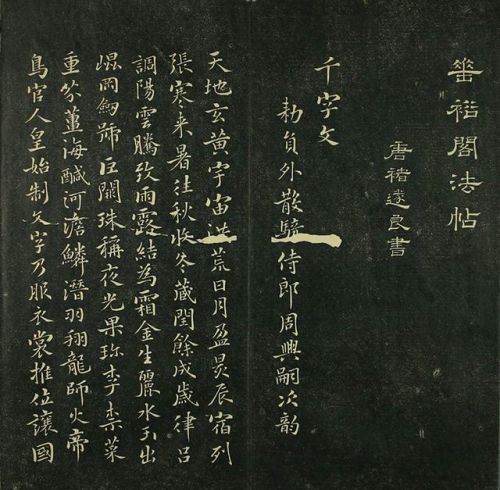 垂裕閣法帖
唐褚遂良書
千字文
勅員外散騎侍郎周興嗣次韵
天地玄黃宇宙洪荒日月盈昃辰宿列
張寒来暑往秋收冬藏閏餘成歲律呂
調陽雲騰致雨露結為霜金生麗水玉出
崐岡劒號巨闕珠稱夜光果珎李柰菜
重芥薑海醎河澹鱗潛羽翔龍師火帝
鳥官人皇始制文字乃服衣裳推位讓國